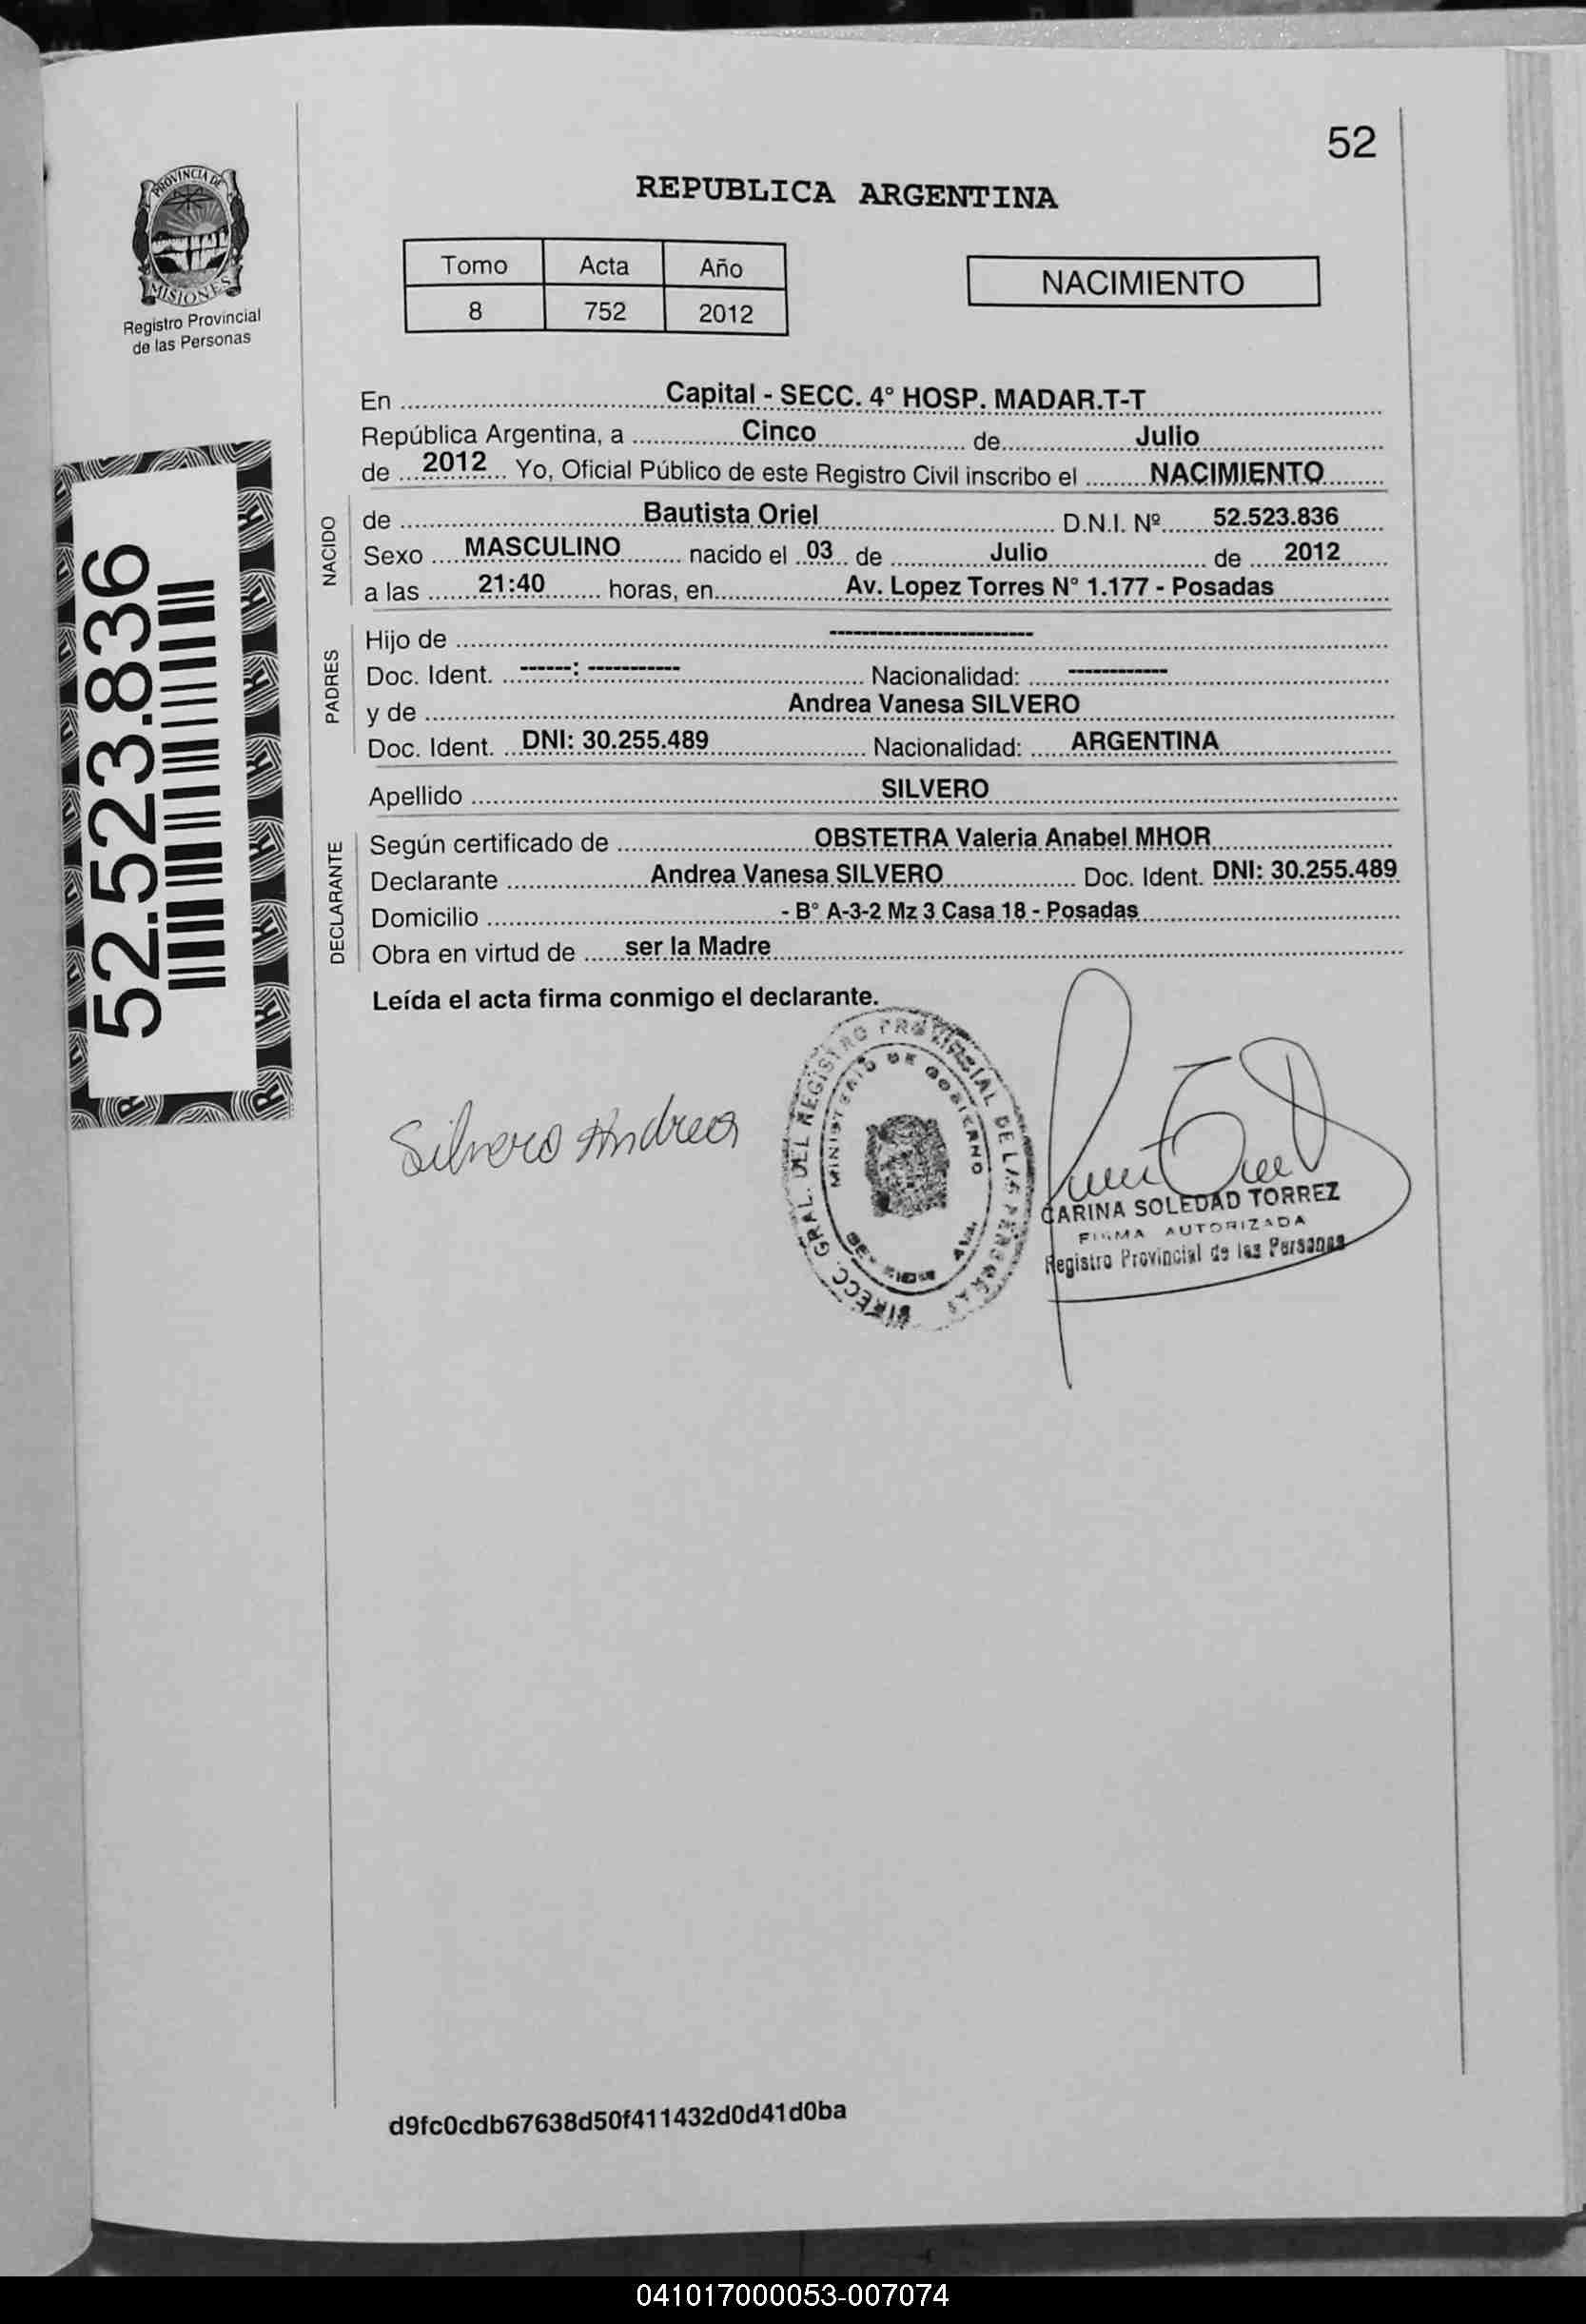 52
PROVINCIA DE
MISIONES
Registro Provincial
de las Personas
REPUBLICA ARGENTINA
Tomo Acta Año
8 752 2012
NACIMIENTO
En Capital - SECC. 4° HOSP. MADAR.T-T
República Argentina, a Cinco de Julio
de 2012 Yo, Oficial Público de este Registro Civil inscribo el NACIMIENTO
NACIDO
de Bautista Oriel D.N.I. Nº 52.523.836
Sexo MASCULINO nacido el 03 de Julio de 2012
a las 21:40 horas, en Av. Lopez Torres N° 1.177 - Posadas
PADRES
Hijo de ------------------------
Doc. Ident. ------: ----------- Nacionalidad: ------------
y de Andrea Vanesa SILVERO
Doc. Ident. DNI: 30.255.489 Nacionalidad: ARGENTINA
Apellido SILVERO
DECLARANTE
Según certificado de OBSTETRA Valeria Anabel MHOR
Declarante Andrea Vanesa SILVERO Doc. Ident. DNI: 30.255.489
Domicilio - B° A-3-2 Mz 3 Casa 18 - Posadas
Obra en virtud de ser la Madre
Leída el acta firma conmigo el declarante.
52.523.836
Silvero Andrea
DIRECC. GRAL. DEL REGISTRO PROVINCIAL DE LAS PERSONAS
MINISTERIO DE GOBIERNO
CARINA SOLEDAD TORREZ
FIRMA AUTORIZADA
Registro Provincial de las Personas
d9fc0cdb67638d50f411432d0d41d0ba
041017000053-007074